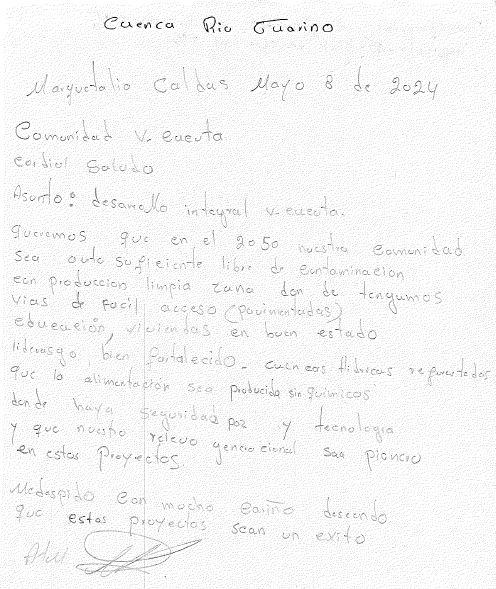 Cuenca Rio Guarino
Marquetalia Caldas Mayo 8 de 2024
Comunidad v. cueuta
cordial Saludo
Asunto: desarrollo integral v. cueuta.
queremos que en el 2050 nuestra comunidad
sea auto suficiente libre de contaminacion
con produccion limpia zana don de tengamos
vias de facil acceso (pavimentadas)
educación, viviendas en buen estado
liderasgo bien fortalecido. cuencas Hidricas reforestadas
que la alimentación sea producida sin quimicos
donde haya seguridad paz y tecnologia
y que nuestro relevo generacional sea pionero
en estos Proyectos.
Me despido con mucho cariño deseando
que estos proyectos sean un exito